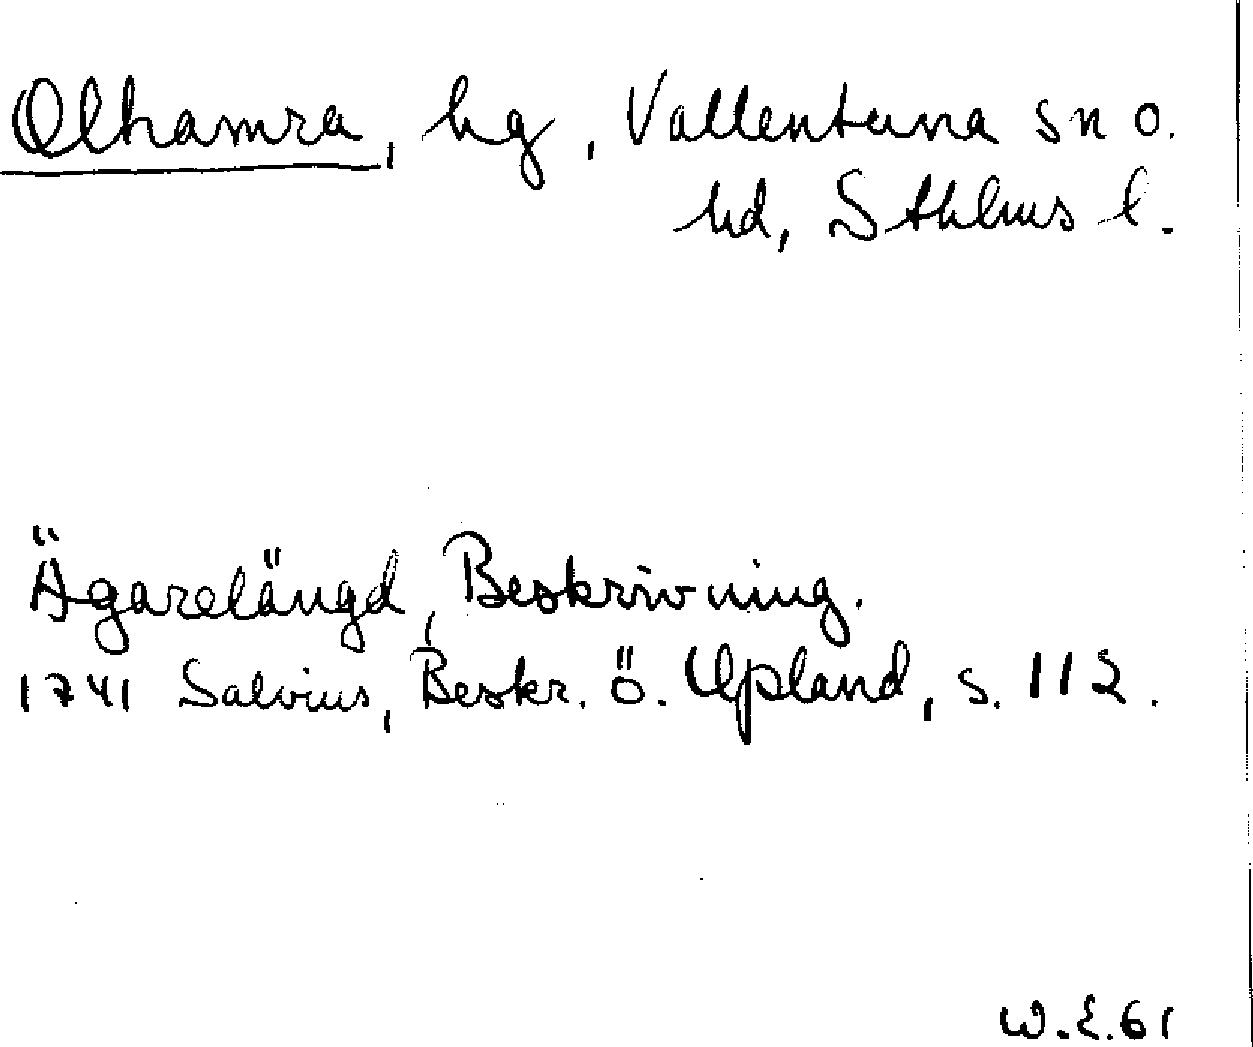 Olhamra, hg, Vallentuna sn o.
hd, Sthlms l.
Ägarelängd, Beskrivning.
1741 Salvius, Beskr. ö. Upland, s. 112.
W.E.61